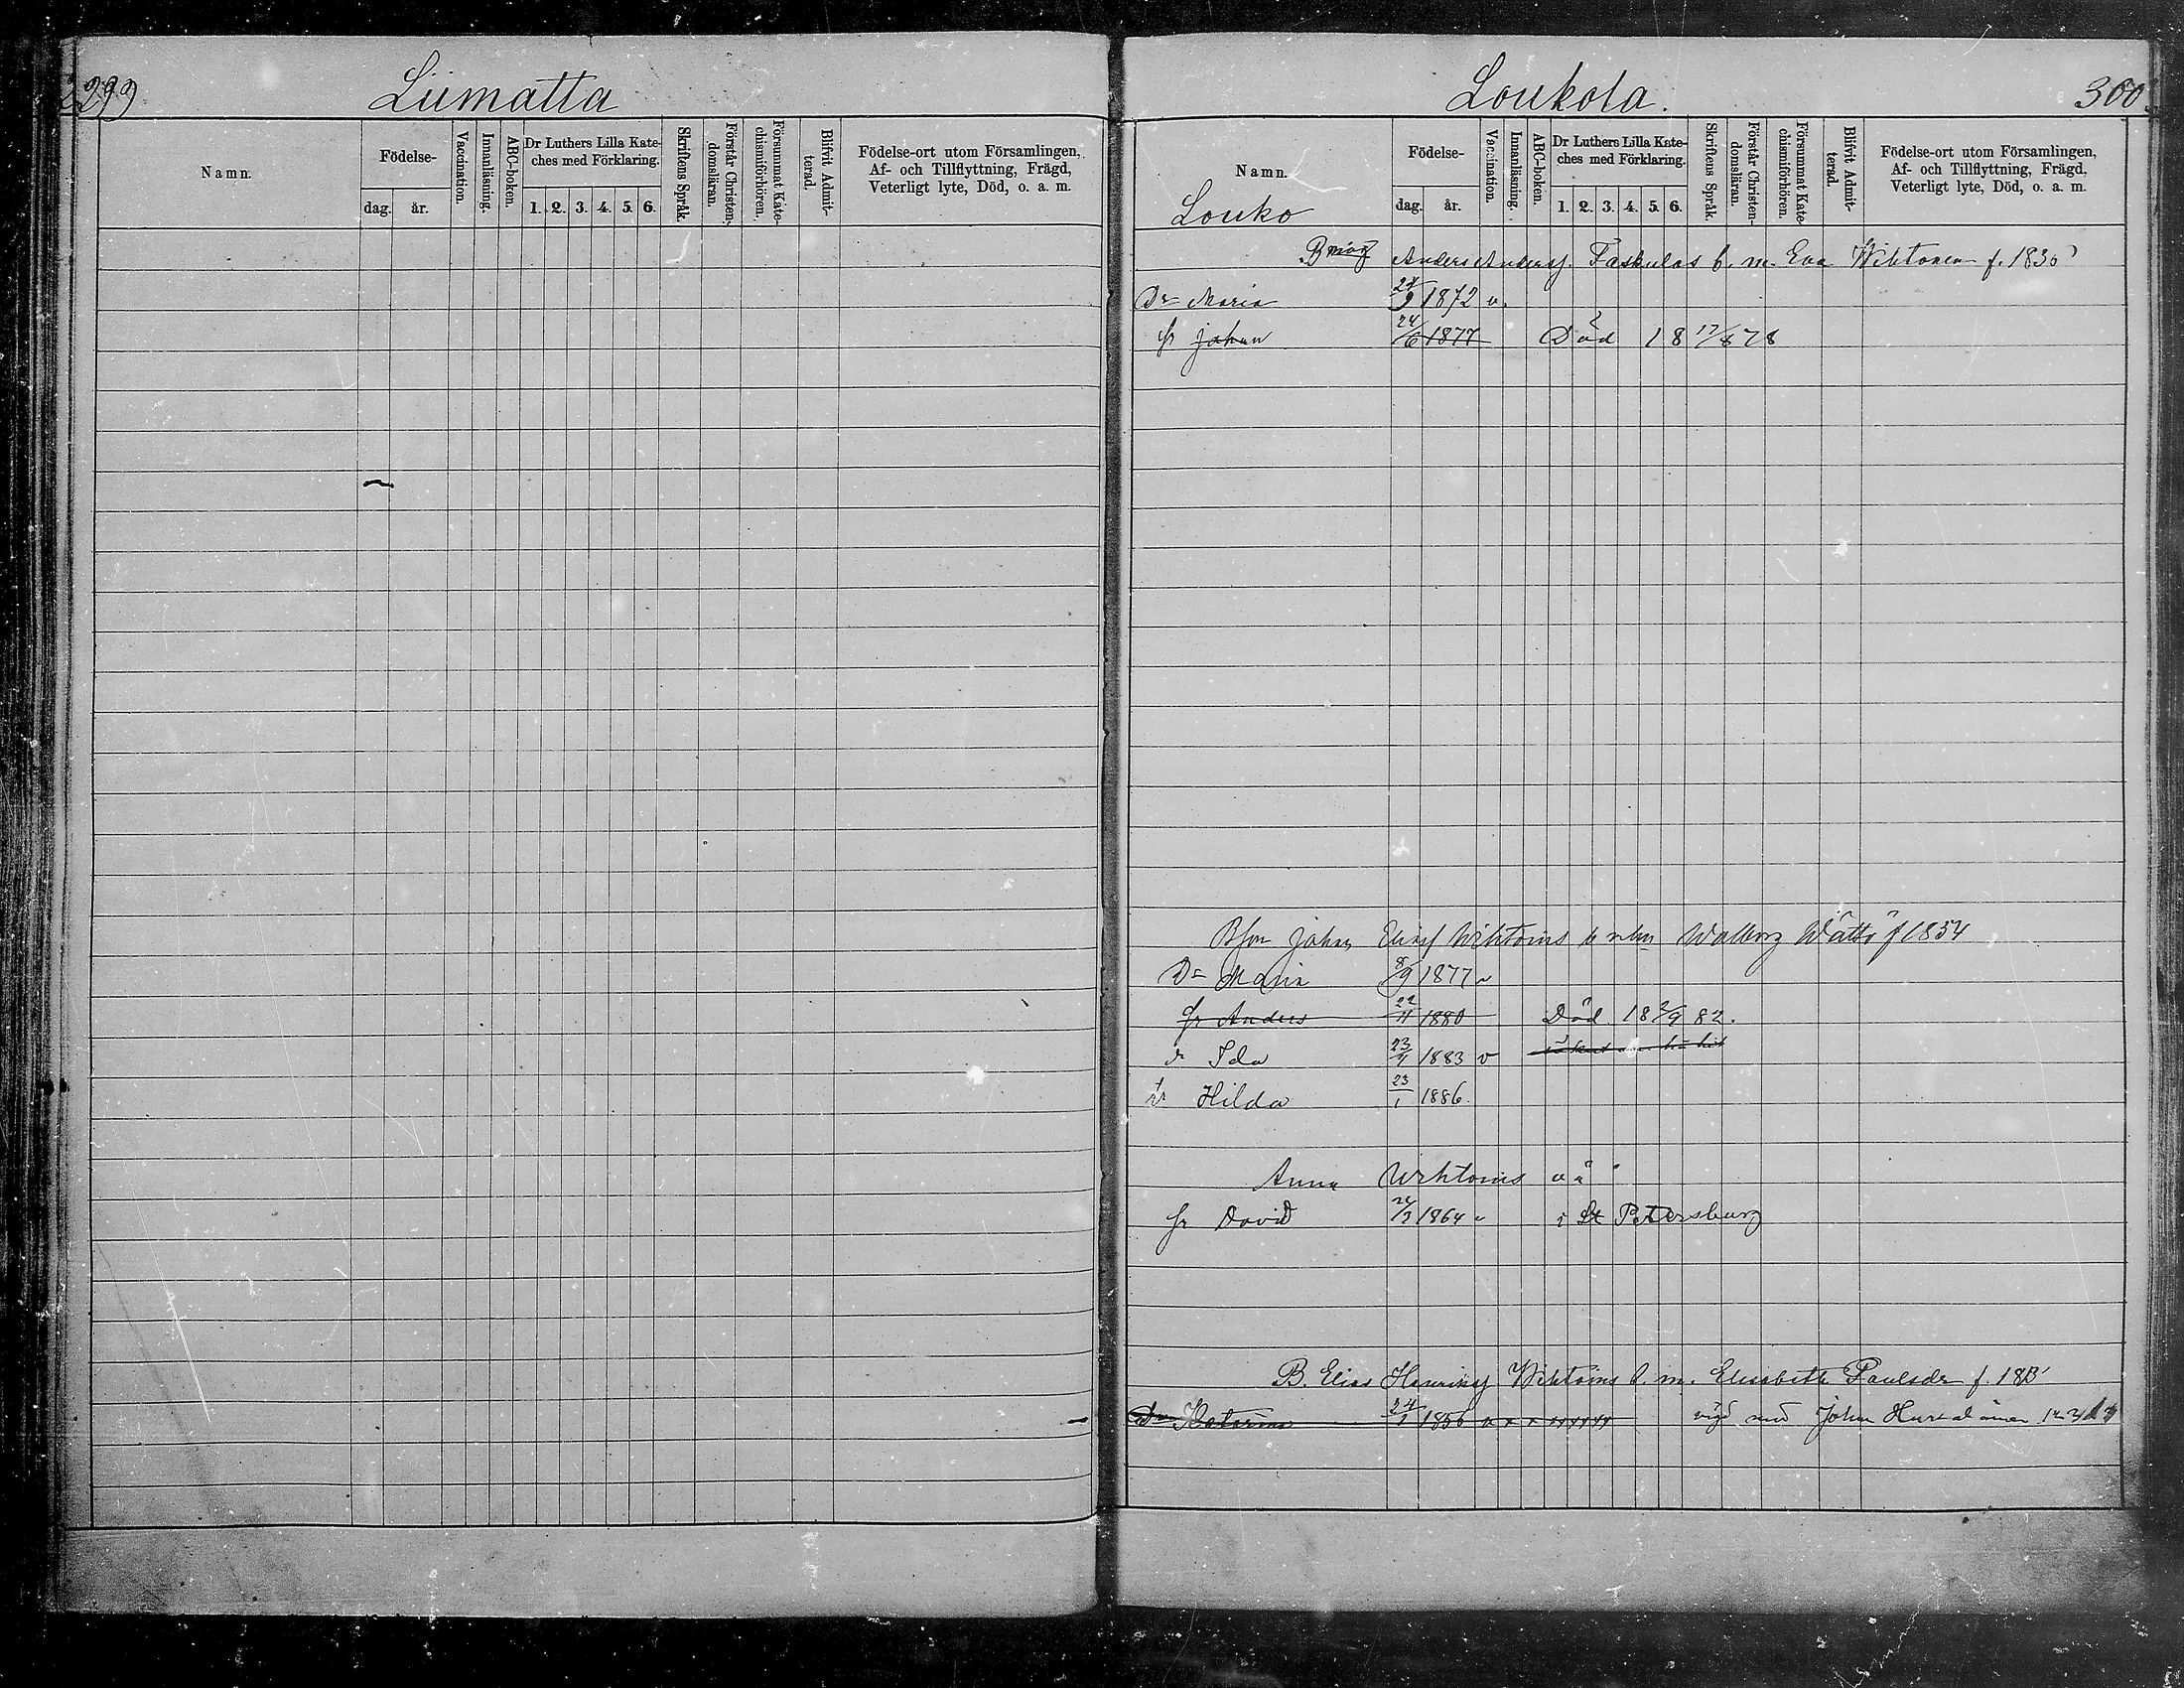 299
Liimatta
Namn.
Födelse-
dag. år.
Vaccination.
Innanläsning.
ABC-boken.
Dr Luthers Lilla Kate-
ches med Förklaring.
1. 2. 3. 4. 5. 6.
Skriftens Språk.
Förstår Christen-
domsläran.
Försummat Kate-
chismiförhören.
Blifvit Admit-
terad.
Födelse-ort utom Församlingen,
Af- och Tillflyttning, Frägd,
Veterligt lyte, Död, o. a. m.
Loukola.
300
Namn.
Födelse-
dag. år.
Vaccination.
Innanläsning.
ABC-boken.
Dr Luthers Lilla Kate-
ches med Förklaring.
1. 2. 3. 4. 5. 6.
Skriftens Språk.
Förstår Christen-
domsläran.
Försummat Kate-
chismiförhören.
Blifvit Admit-
terad.
Födelse-ort utom Församlingen,
Af- och Tillflyttning, Frägd,
Veterligt lyte, Död, o. a. m.
Louko
Anders Andersf. Taskulas b. m. Eva Wihtonen f. 1830
Dr Maria 1872 v.
Sr Johan 24/6 1877 Död 18 17/8 78
Bson Johan Eliasf Wihtonis Walborg Wättö f 1854
Dr Maria 8/9 1877 v
Sr Anders 22/11 1880 Död 18 2/9 82.
dr Ida 23/9 1883 v
dr Hilda 23/1 1886.
Anna Wihtonis
Sr David 1864 v i St Petersburg
B. Elias Henriksf Wihtonis b. m. Elisabeth Paulsdr f.
Dr Katarina 24/1 1856 v x x x x x x x vigd med Johan